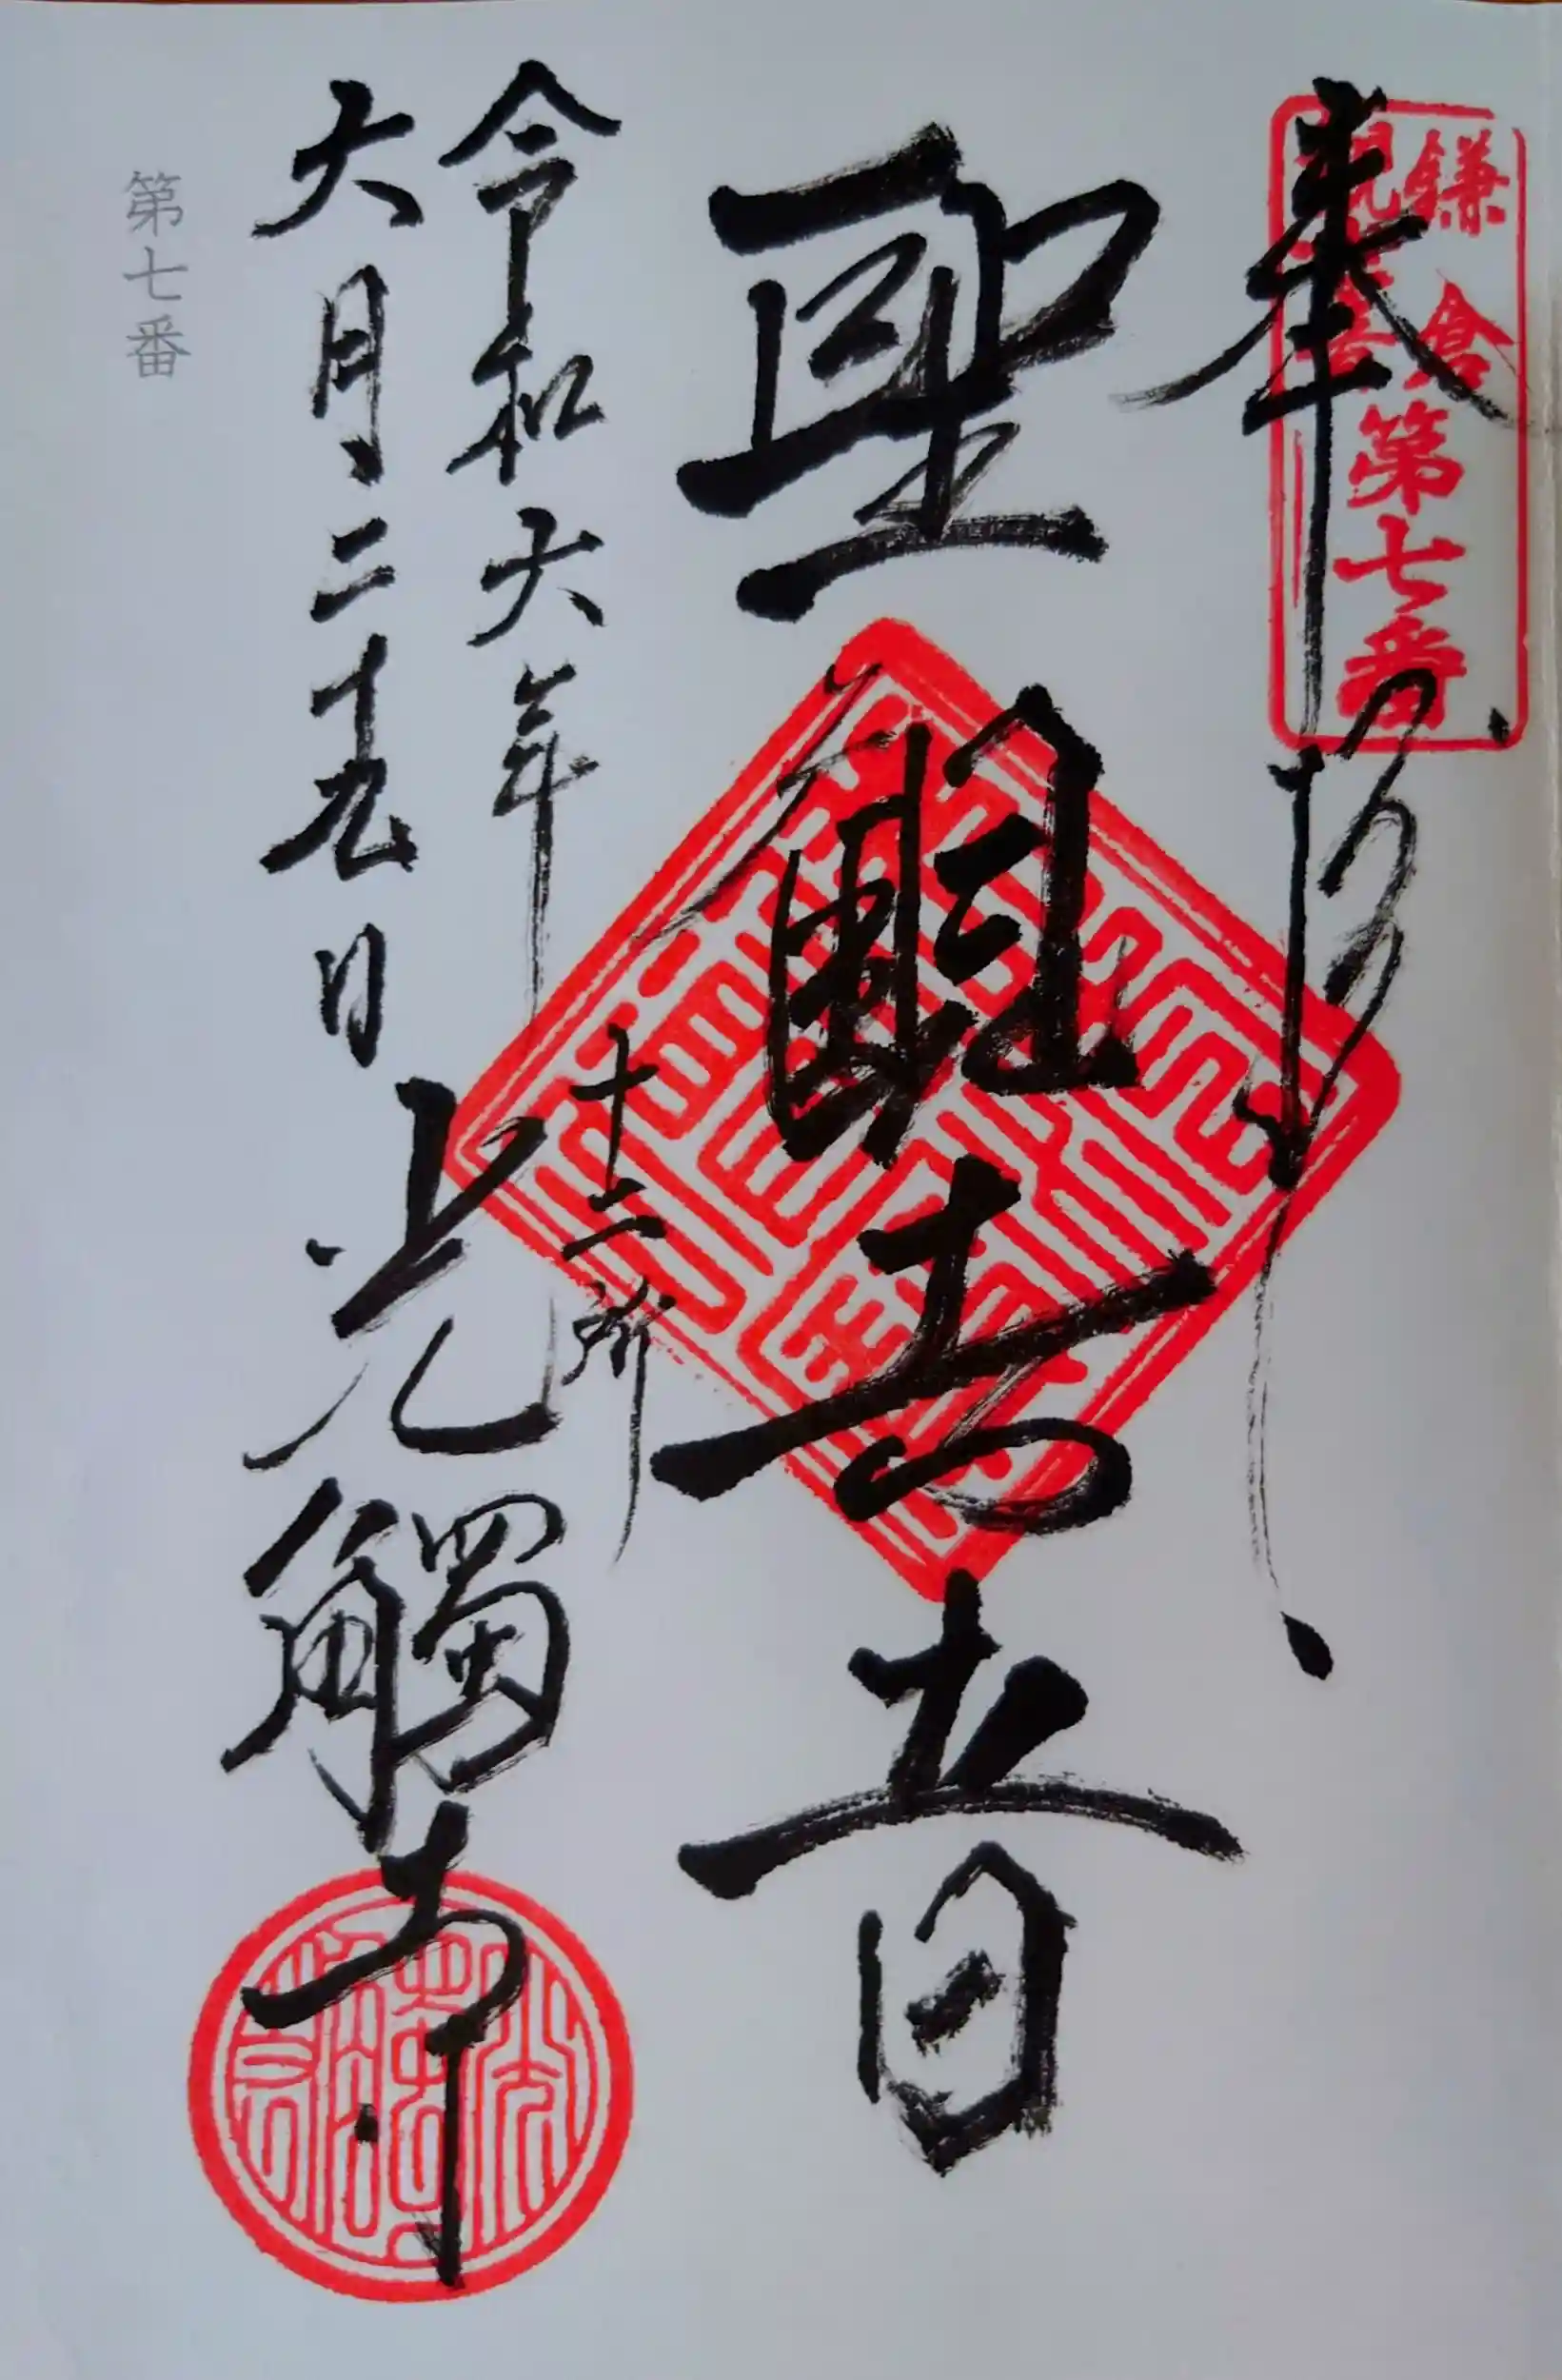 鎌倉
観世音
第七番
奉拝
聖観世音
令和六年
六月二十九日
十二所
光觸寺
第七番